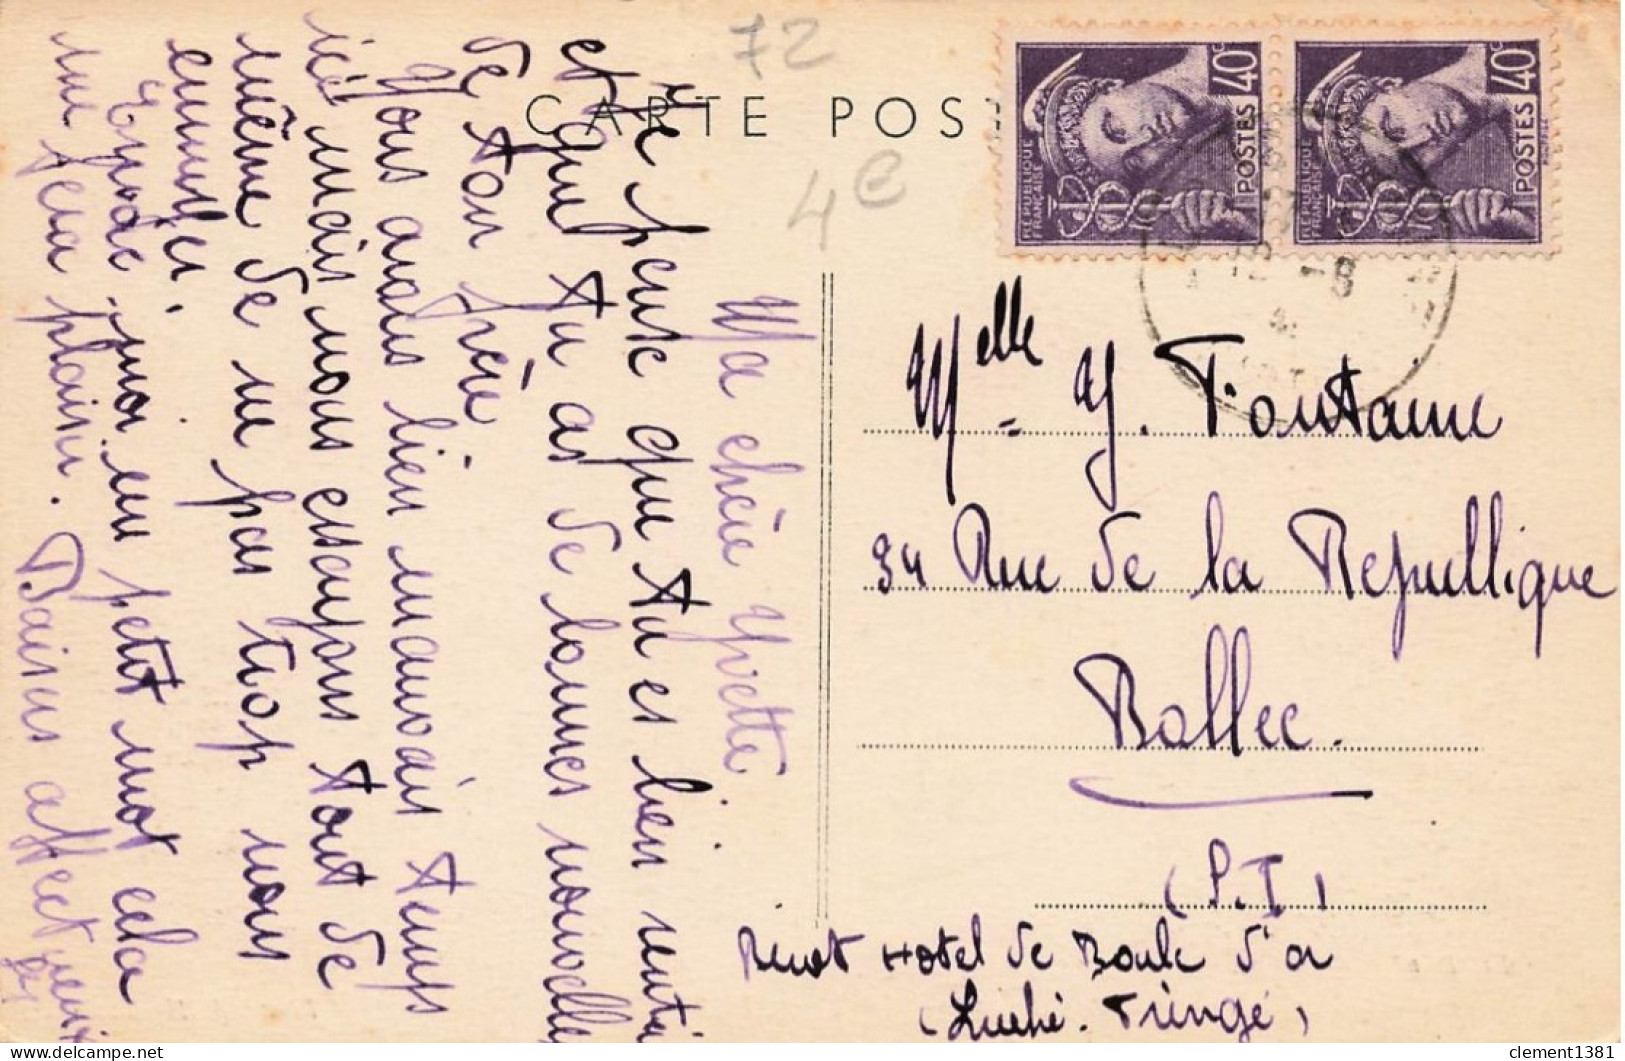 72
CARTE POS
4e
40c
POSTES
REPUBLIQUE
FRANÇAISE
40c
POSTES
REPUBLIQUE
FRANÇAISE
Ma chère Yvette
Je pense que tu es bien rentré
et que tu as de bonnes nouvelles
de ton frère
Nous avons bien mauvais temps
ici mais nous essayons tout de
même de ne pas trop nous
ennuyer.
moi un petit mot cela
me fera plaisir. Baisers affect
Melle Y. Fontaine
34 Rue de la Republique
Ballée.
(S.I)
Hotel de Boule d'or
(Luché. Pringé)
clement1381